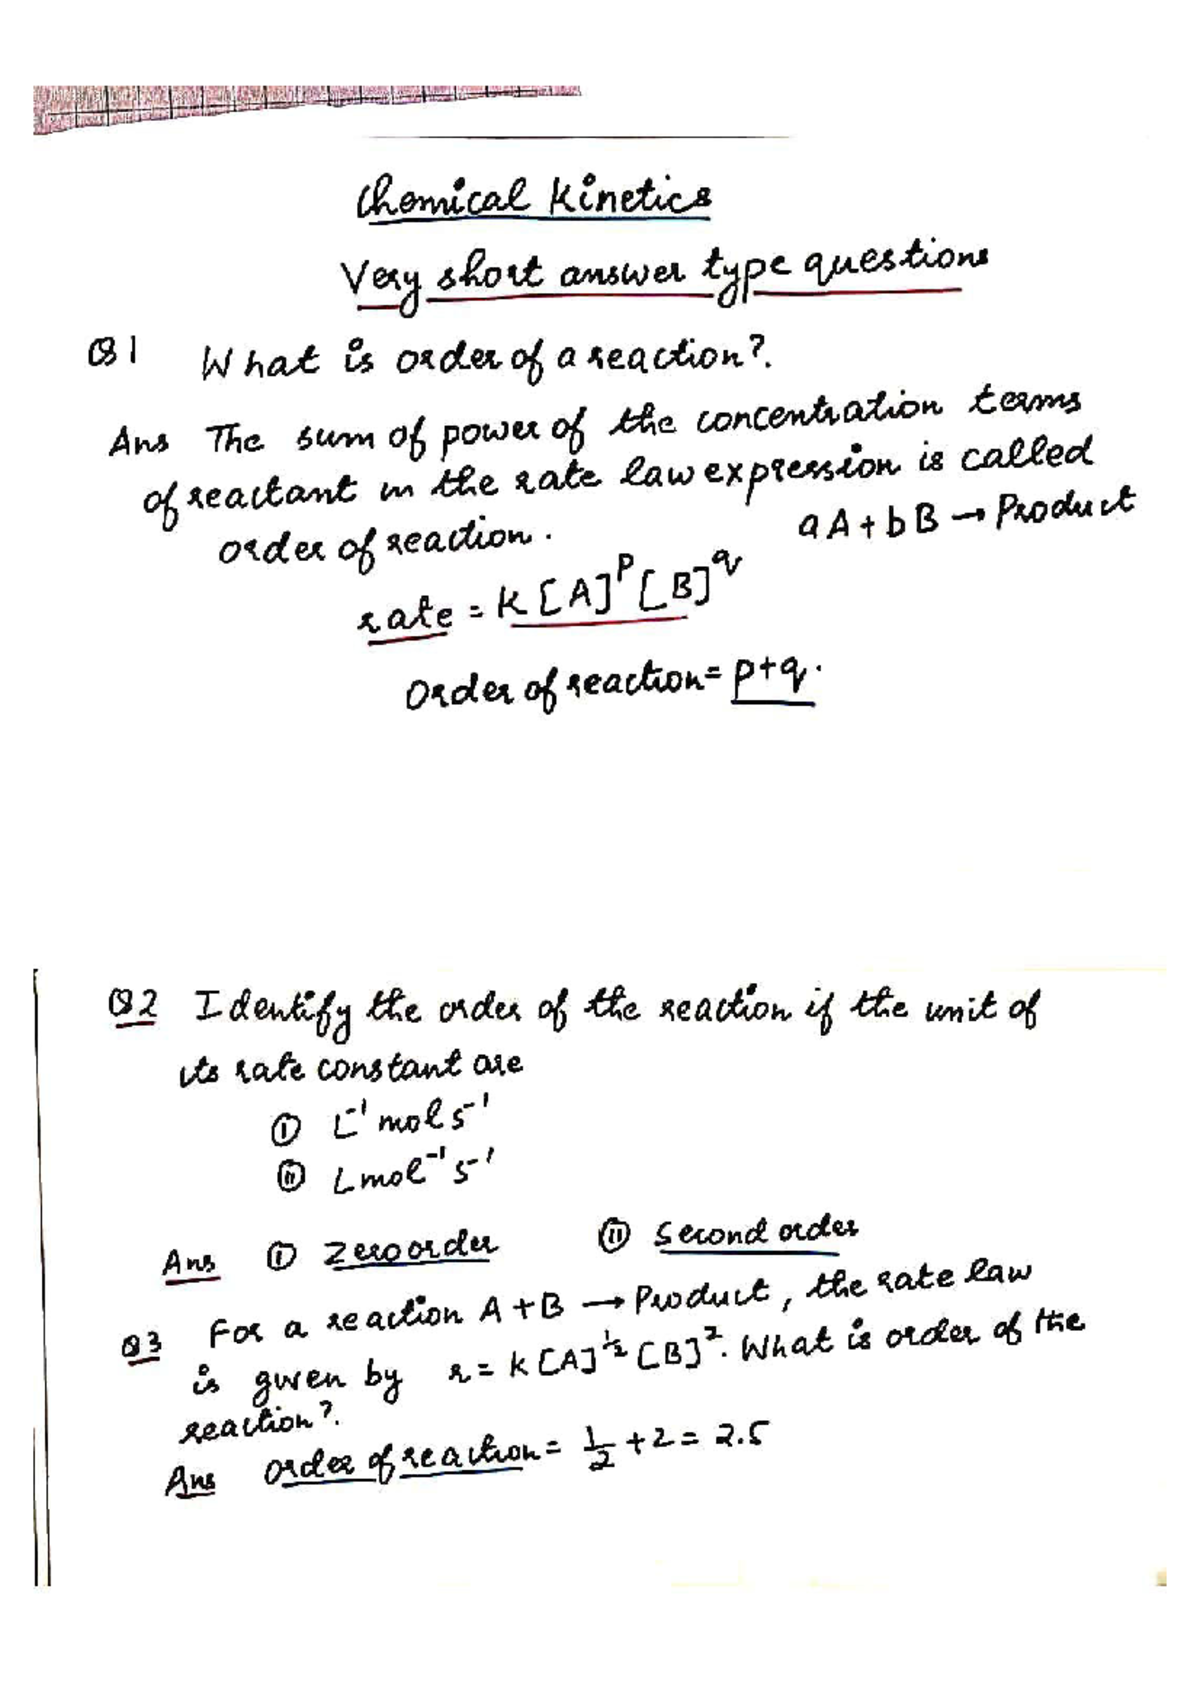 Chemical Kinetics
Very short answer type questions
Q1 What is order of a reaction?.
Ans The sum of power of the concentration terms
of reactant in the rate law expression is called
order of reaction. aA + bB → Product
rate = k [A]^p [B]^q
Order of reaction = p+q.
Q2 Identify the order of the reaction if the unit of
its rate constant are
(i) L⁻¹ mol s⁻¹
(ii) L mol⁻¹ s⁻¹
Ans (i) Zero order (ii) Second order
Q3 For a reaction A + B → Product, the rate law
is given by r = k [A]^½ [B]². What is order of the
reaction?.
Ans order of reaction = 1/2 + 2 = 2.5